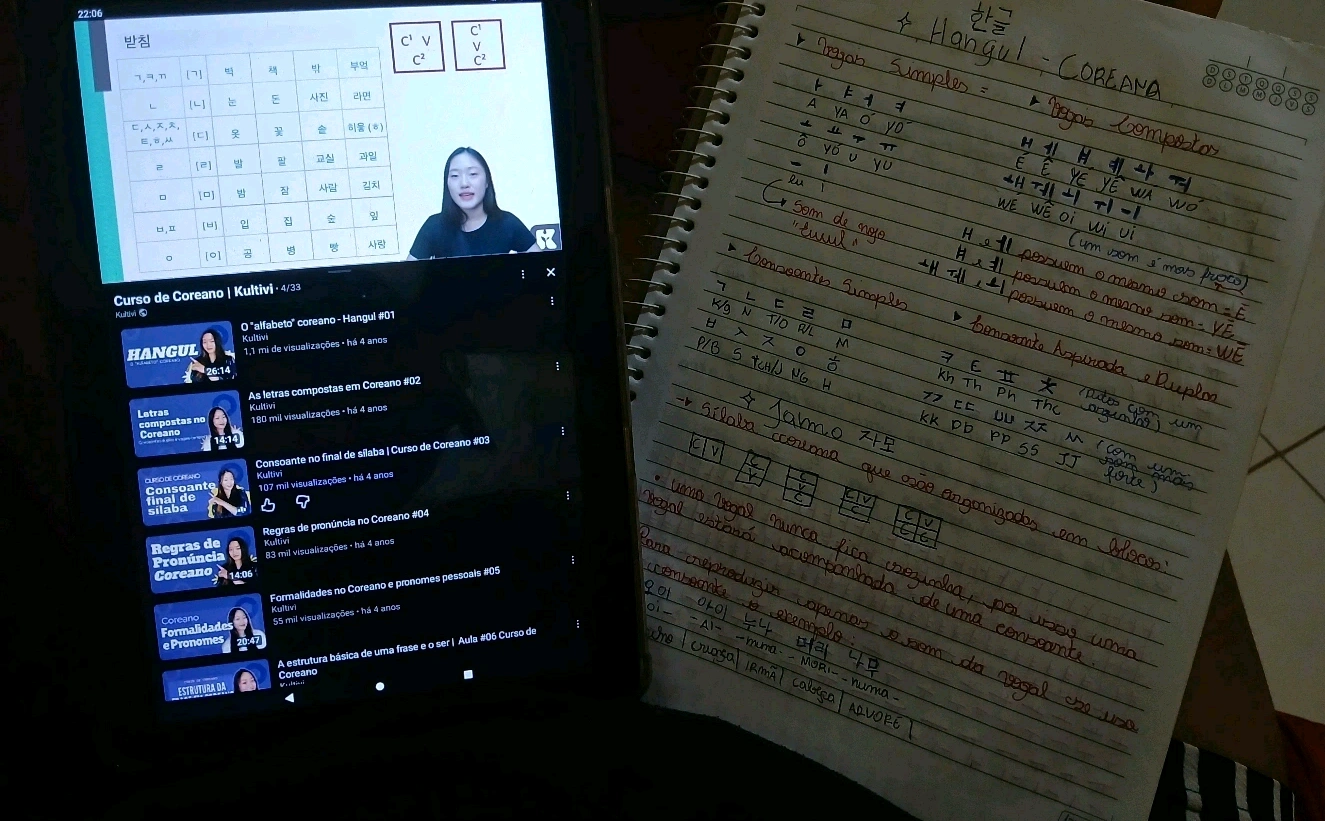 22:06
받침
ㄱ,ㅋ,ㄲ [ㄱ] 벽 책 밖 부엌
ㄴ [ㄴ] 눈 돈 사진 라면
ㄷ,ㅅ,ㅈ,ㅊ,
ㅌ,ㅎ,ㅆ [ㄷ] 옷 꽃 솥 히읗(ㅎ)
ㄹ [ㄹ] 발 팔 교실 과일
ㅁ [ㅁ] 밤 잠 사람 김치
ㅂ,ㅍ [ㅂ] 입 집 숲 잎
ㅇ [ㅇ] 공 병 빵 사랑
C¹ V
C²
C¹
V
C²
Curso de Coreano | Kultivi · 4/33
Kultivi
HANGUL
26:14
O "alfabeto" coreano - Hangul #01
Kultivi
1,1 mi de visualizações · há 4 anos
Letras
compostas no
Coreano
14:14
As letras compostas em Coreano #02
Kultivi
180 mil visualizações · há 4 anos
CURSO DE COREANO
Consoante
final de
sílaba
Consoante no final de sílaba | Curso de Coreano #03
Kultivi
107 mil visualizações · há 4 anos
Regras de
Pronúncia
Coreano
14:06
Regras de pronúncia no Coreano #04
Kultivi
83 mil visualizações · há 4 anos
Coreano
Formalidades
e Pronomes
20:47
Formalidades no Coreano e pronomes pessoais #05
Kultivi
55 mil visualizações · há 4 anos
ESTRUTURA DA
A estrutura básica de uma frase e o ser | Aula #06 Curso de
Coreano
한글
Hangul - COREANA
Vogais Simples =
ㅏ ㅑ ㅓ ㅕ
A YA Ó YÓ
ㅗ ㅛ ㅜ ㅠ
Ô YÔ U YU
ㅡ ㅣ
eu i
Som de nojo
Vogais Compostas
ㅐ ㅔ ㅒ ㅖ ㅘ ㅝ
É Ê YÉ YÊ WA WÓ
ㅙ ㅞ ㅚ ㅟ ㅢ
WÉ WÊ Oi Wi Ui
(um som é mais fraco)
ㅐ e ㅔ possuem o mesmo som = Ê
ㅒ e ㅖ possuem o mesmo som = YÊ
ㅙ, ㅞ, ㅚ possuem o mesmo som = WÊ
Consoantes Simples
ㄱ ㄴ ㄷ ㄹ ㅁ
K/g N T/D R/L M
ㅂ ㅅ ㅈ ㅇ ㅎ
P/B S TCH/J NG H
Consoante Aspirada e Duplas
ㅋ ㅌ ㅍ ㅊ
Kh Th Ph Thc
ㄲ ㄸ ㅃ ㅉ ㅆ (com um
KK DD PP SS JJ som mais
forte)
Jamo 자모
Sílaba coreana que são organizadas em blocos:
C V
C
V
C
V
C
C V
C
C V
C C
uma vogal nunca fica sozinha, pra usar uma
vogal estará acompanhada de uma consoante.
Para reproduzir apenas o som da vogal se usa
consoante exemplo:
오이 아이 누나 머리 나무
-Ai- -nuna- -MORi- -numa-
criança | iRMÃ | cabeça | ARVORE |